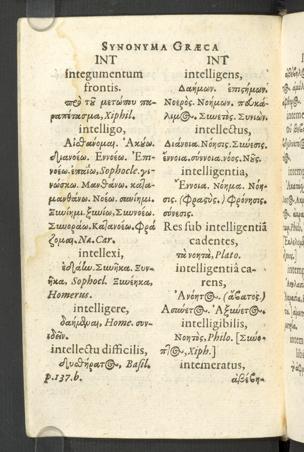 SYNONYMA GRÆCA
INT
Integumentum
frontis.
τοῦ μετώπου πα-
ραπέτασμα, Xiphil.
intelligo,
Αἰσθάνομαι. Ἀκούω.
διανοέω. Ἐννοέω. Ἐπι-
νοέω. ἐπαΐω, Sophocle. γι-
νώσκω. Μανθάνω. κατα-
μανθάνω. Νοέω. συνίημι.
Ξυνίημι. ξυνίω, Συννοέω.
Συνοράω. Κατανοέω. Φρά
ζομαι. Na. Car.
intellexi,
Συνῆκα. Ξυν-
ῆκα, Sophocl. Ξυνέηκα,
Homerus.
intelligere,
δαήμεναι, Home. συν-
intellectu difficilis,
Basil.
p.137.b.
INT
intelligens,
Δαήμων. ἐπιστήμων.
Νοερός. Νοήμων. πουκά-
λιμος. Συνετός. Συνιών.
intellectus,
Διάνοια. Νόησις. Σύνεσις.
ἔννοια. σύννοια. νόος. Νοῦς.
intelligentia,
Ἔννοια. Νόημα. Νόη-
σις. Φρόνησις.
σύνεσις.
Res sub intelligentiã
cadentes,
τὰ νοητά, Plato.
intelligentiâ ca-
rens,
Ἀνόητος.
Ἀσύνετος. Ἀξύνετος.
intelligibilis,
Νοητός, Philo.
Xiph.]
intemeratus,